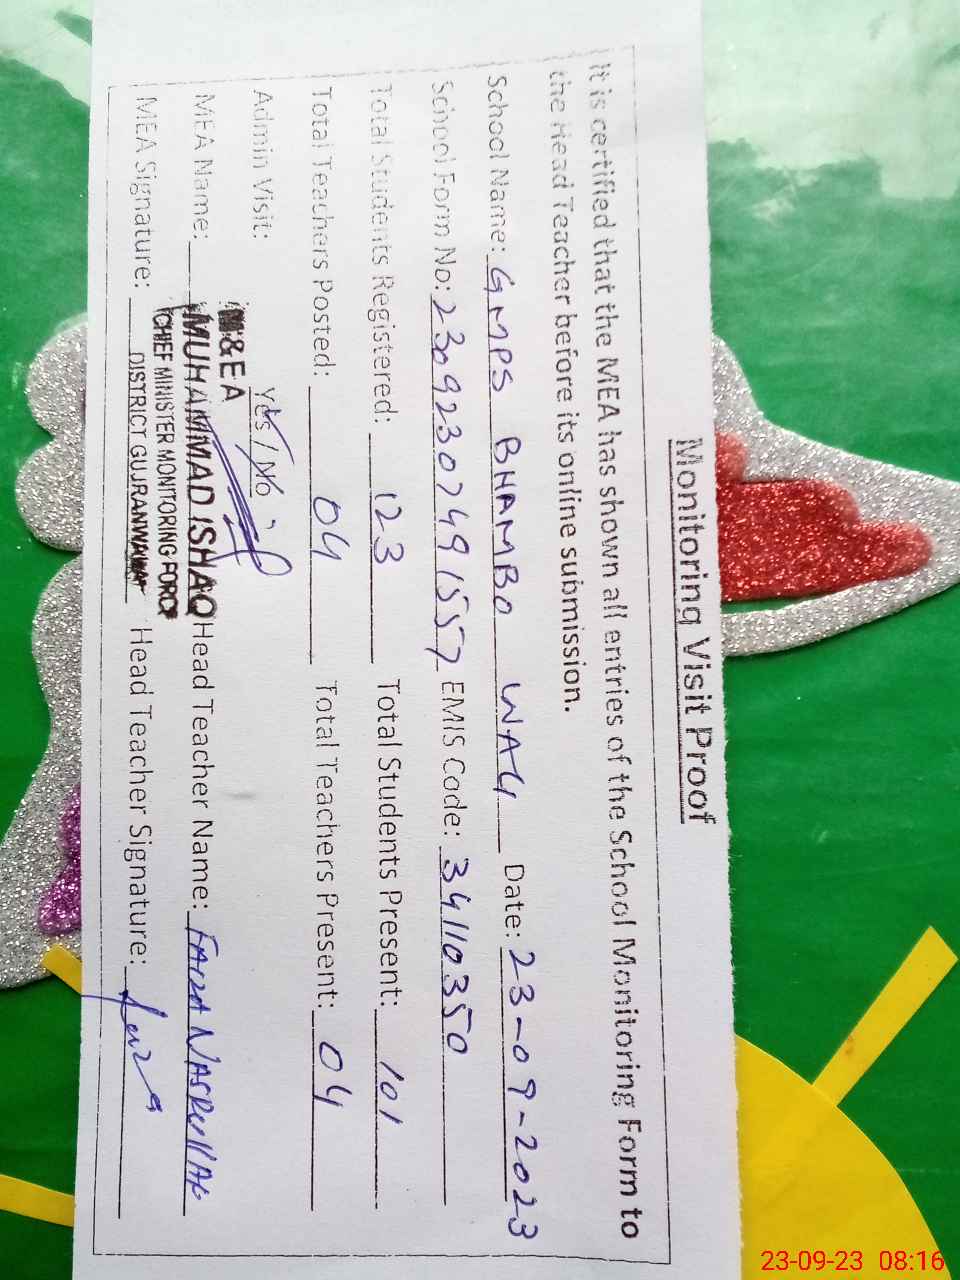 Monitoring Visit Proof
It is certified that the MEA has shown all entries of the School Monitoring Form to
the Head Teacher before its online submission.
School Name: GMPS BHAMBO WALI Date: 23-09-2023
School Form No: 23092307491557 EMIS Code: 34110350
Total Students Registered: 123 Total Students Present: 101
Total Teachers Posted: 04 Total Teachers Present: 04
Admin Visit: Yes / No
M&EA
MEA Name: MUHAMMAD ISHAQ Head Teacher Name: FAIZA
CHIEF MINISTER MONITORING FORCE
MEA Signature: DISTRICT GUJRANWALA Head Teacher Signature: Faiza
23-09-23 08:16